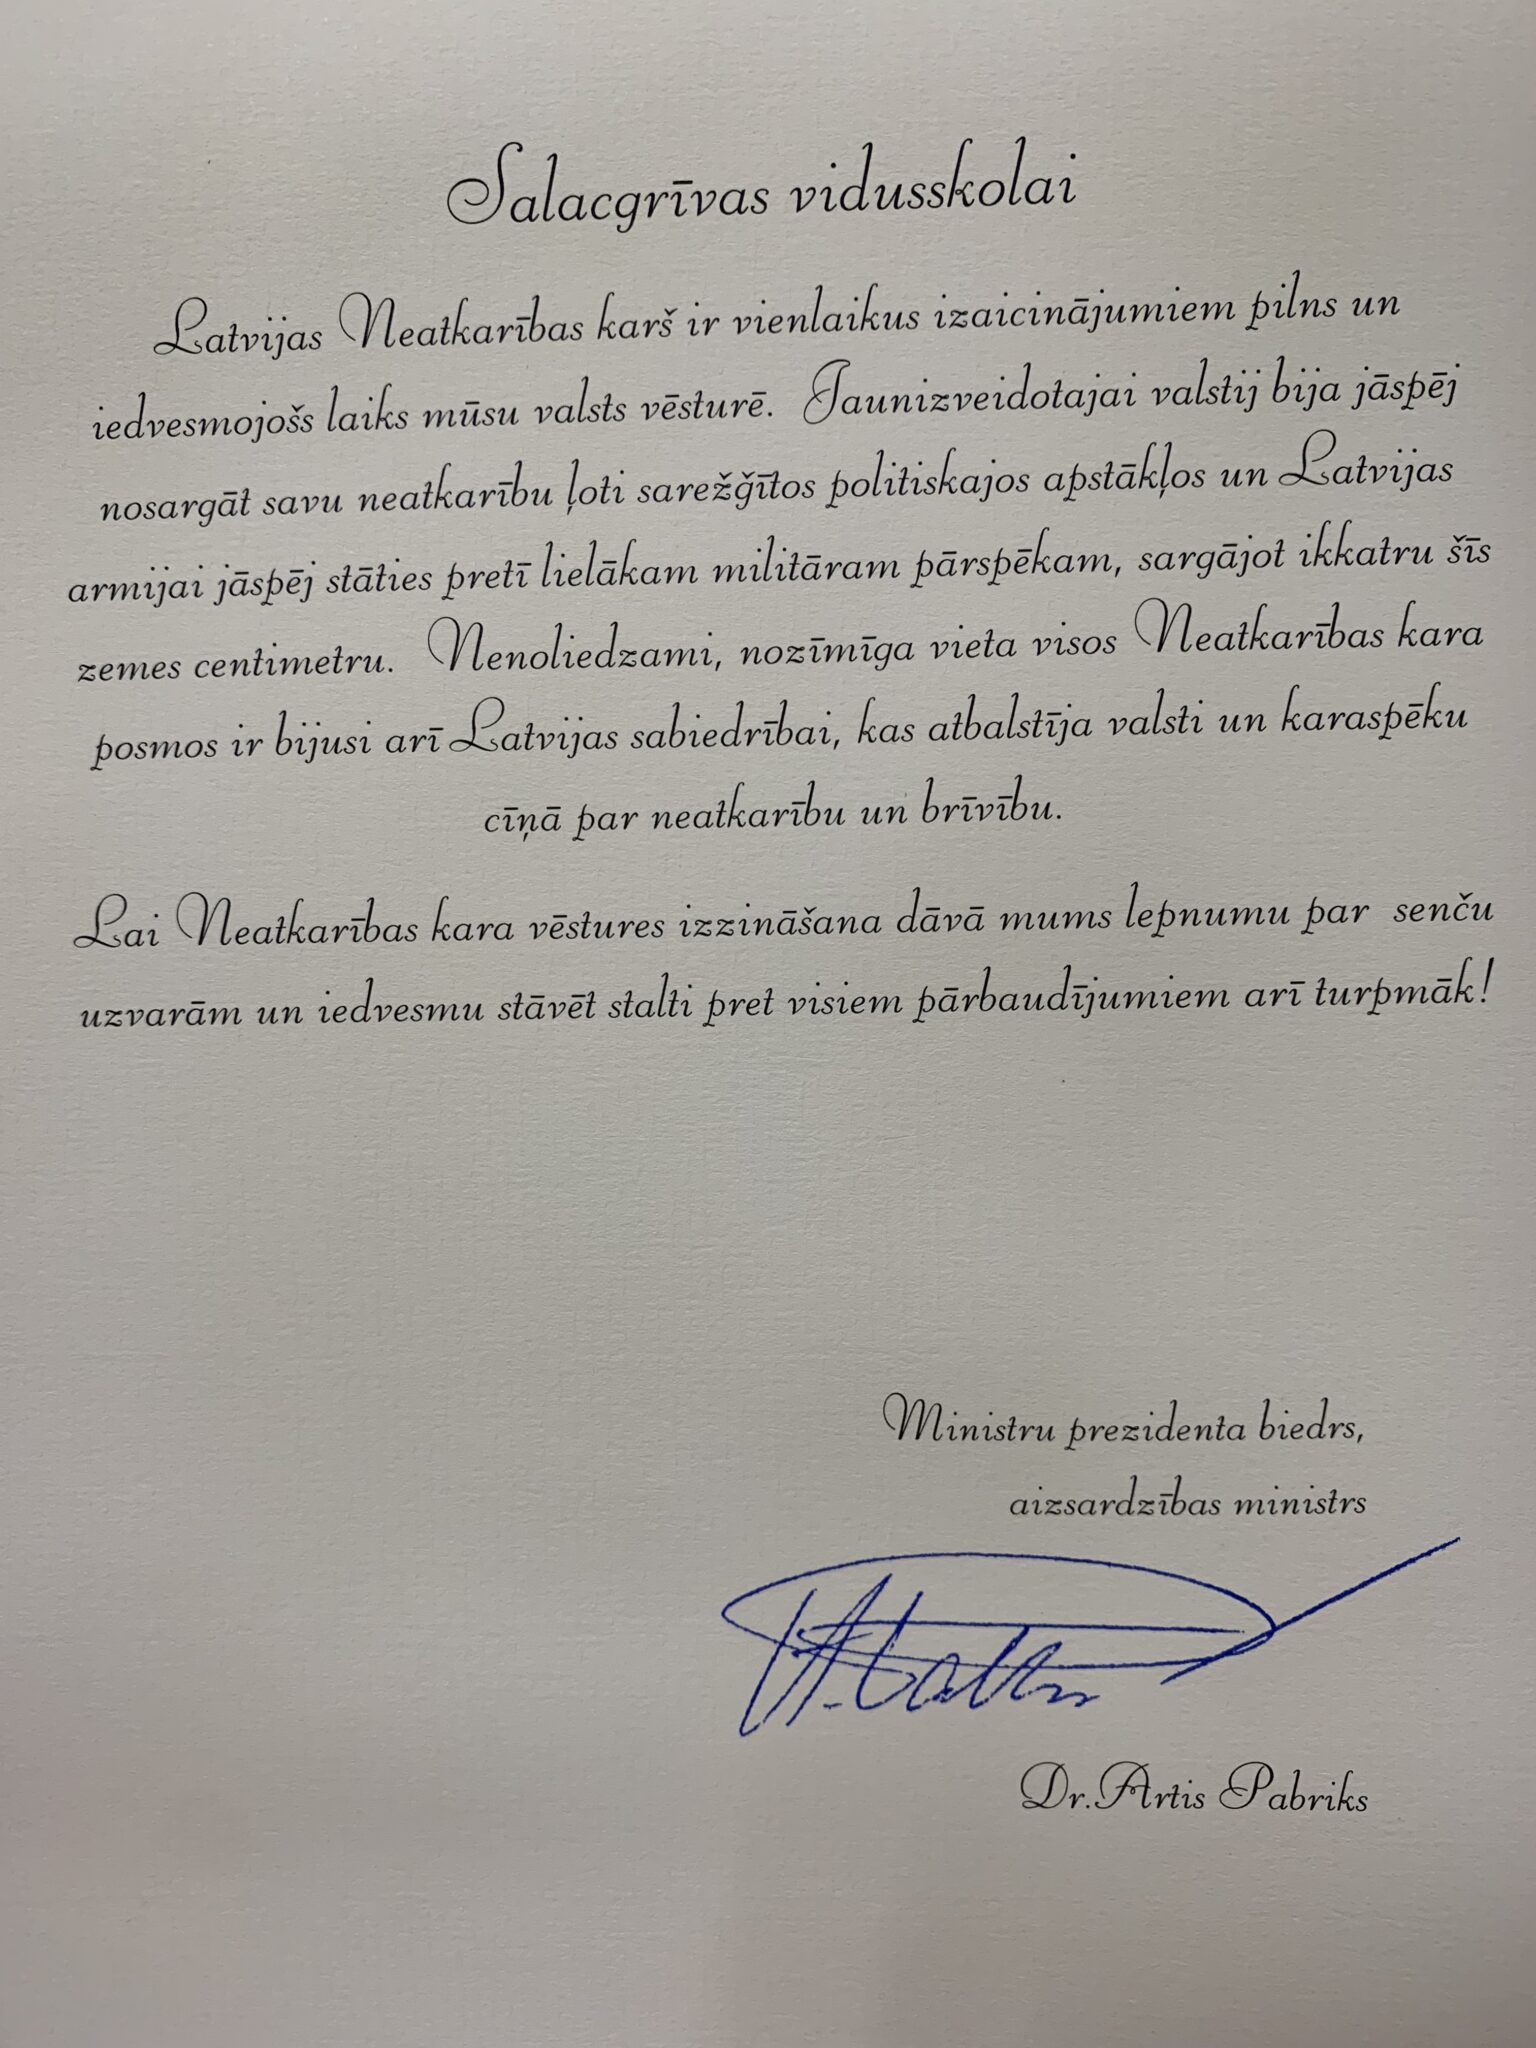 Salacgrīvas vidusskolai
Latvijas Neatkarības karš ir vienlaikus izaicinājumiem pilns un
iedvesmojošs laiks mūsu valsts vēsturē. Jaunizveidotajai valstij bija jāspēj
nosargāt savu neatkarību ļoti sarežģītos politiskajos apstākļos un Latvijas
armijai jāspēj stāties pretī lielākam militāram pārspēkam, sargājot ikkatru šīs
zemes centimetru. Nenoliedzami, nozīmīga vieta visos Neatkarības kara
posmos ir bijusi arī Latvijas sabiedrībai, kas atbalstīja valsti un karaspēku
cīņā par neatkarību un brīvību.
Lai Neatkarības kara vēstures izzināšana dāvā mums lepnumu par senču
uzvarām un iedvesmu stāvēt stalti pret visiem pārbaudījumiem arī turpmāk!
Ministru prezidenta biedrs,
aizsardzības ministrs
Dr.Artis Pabriks